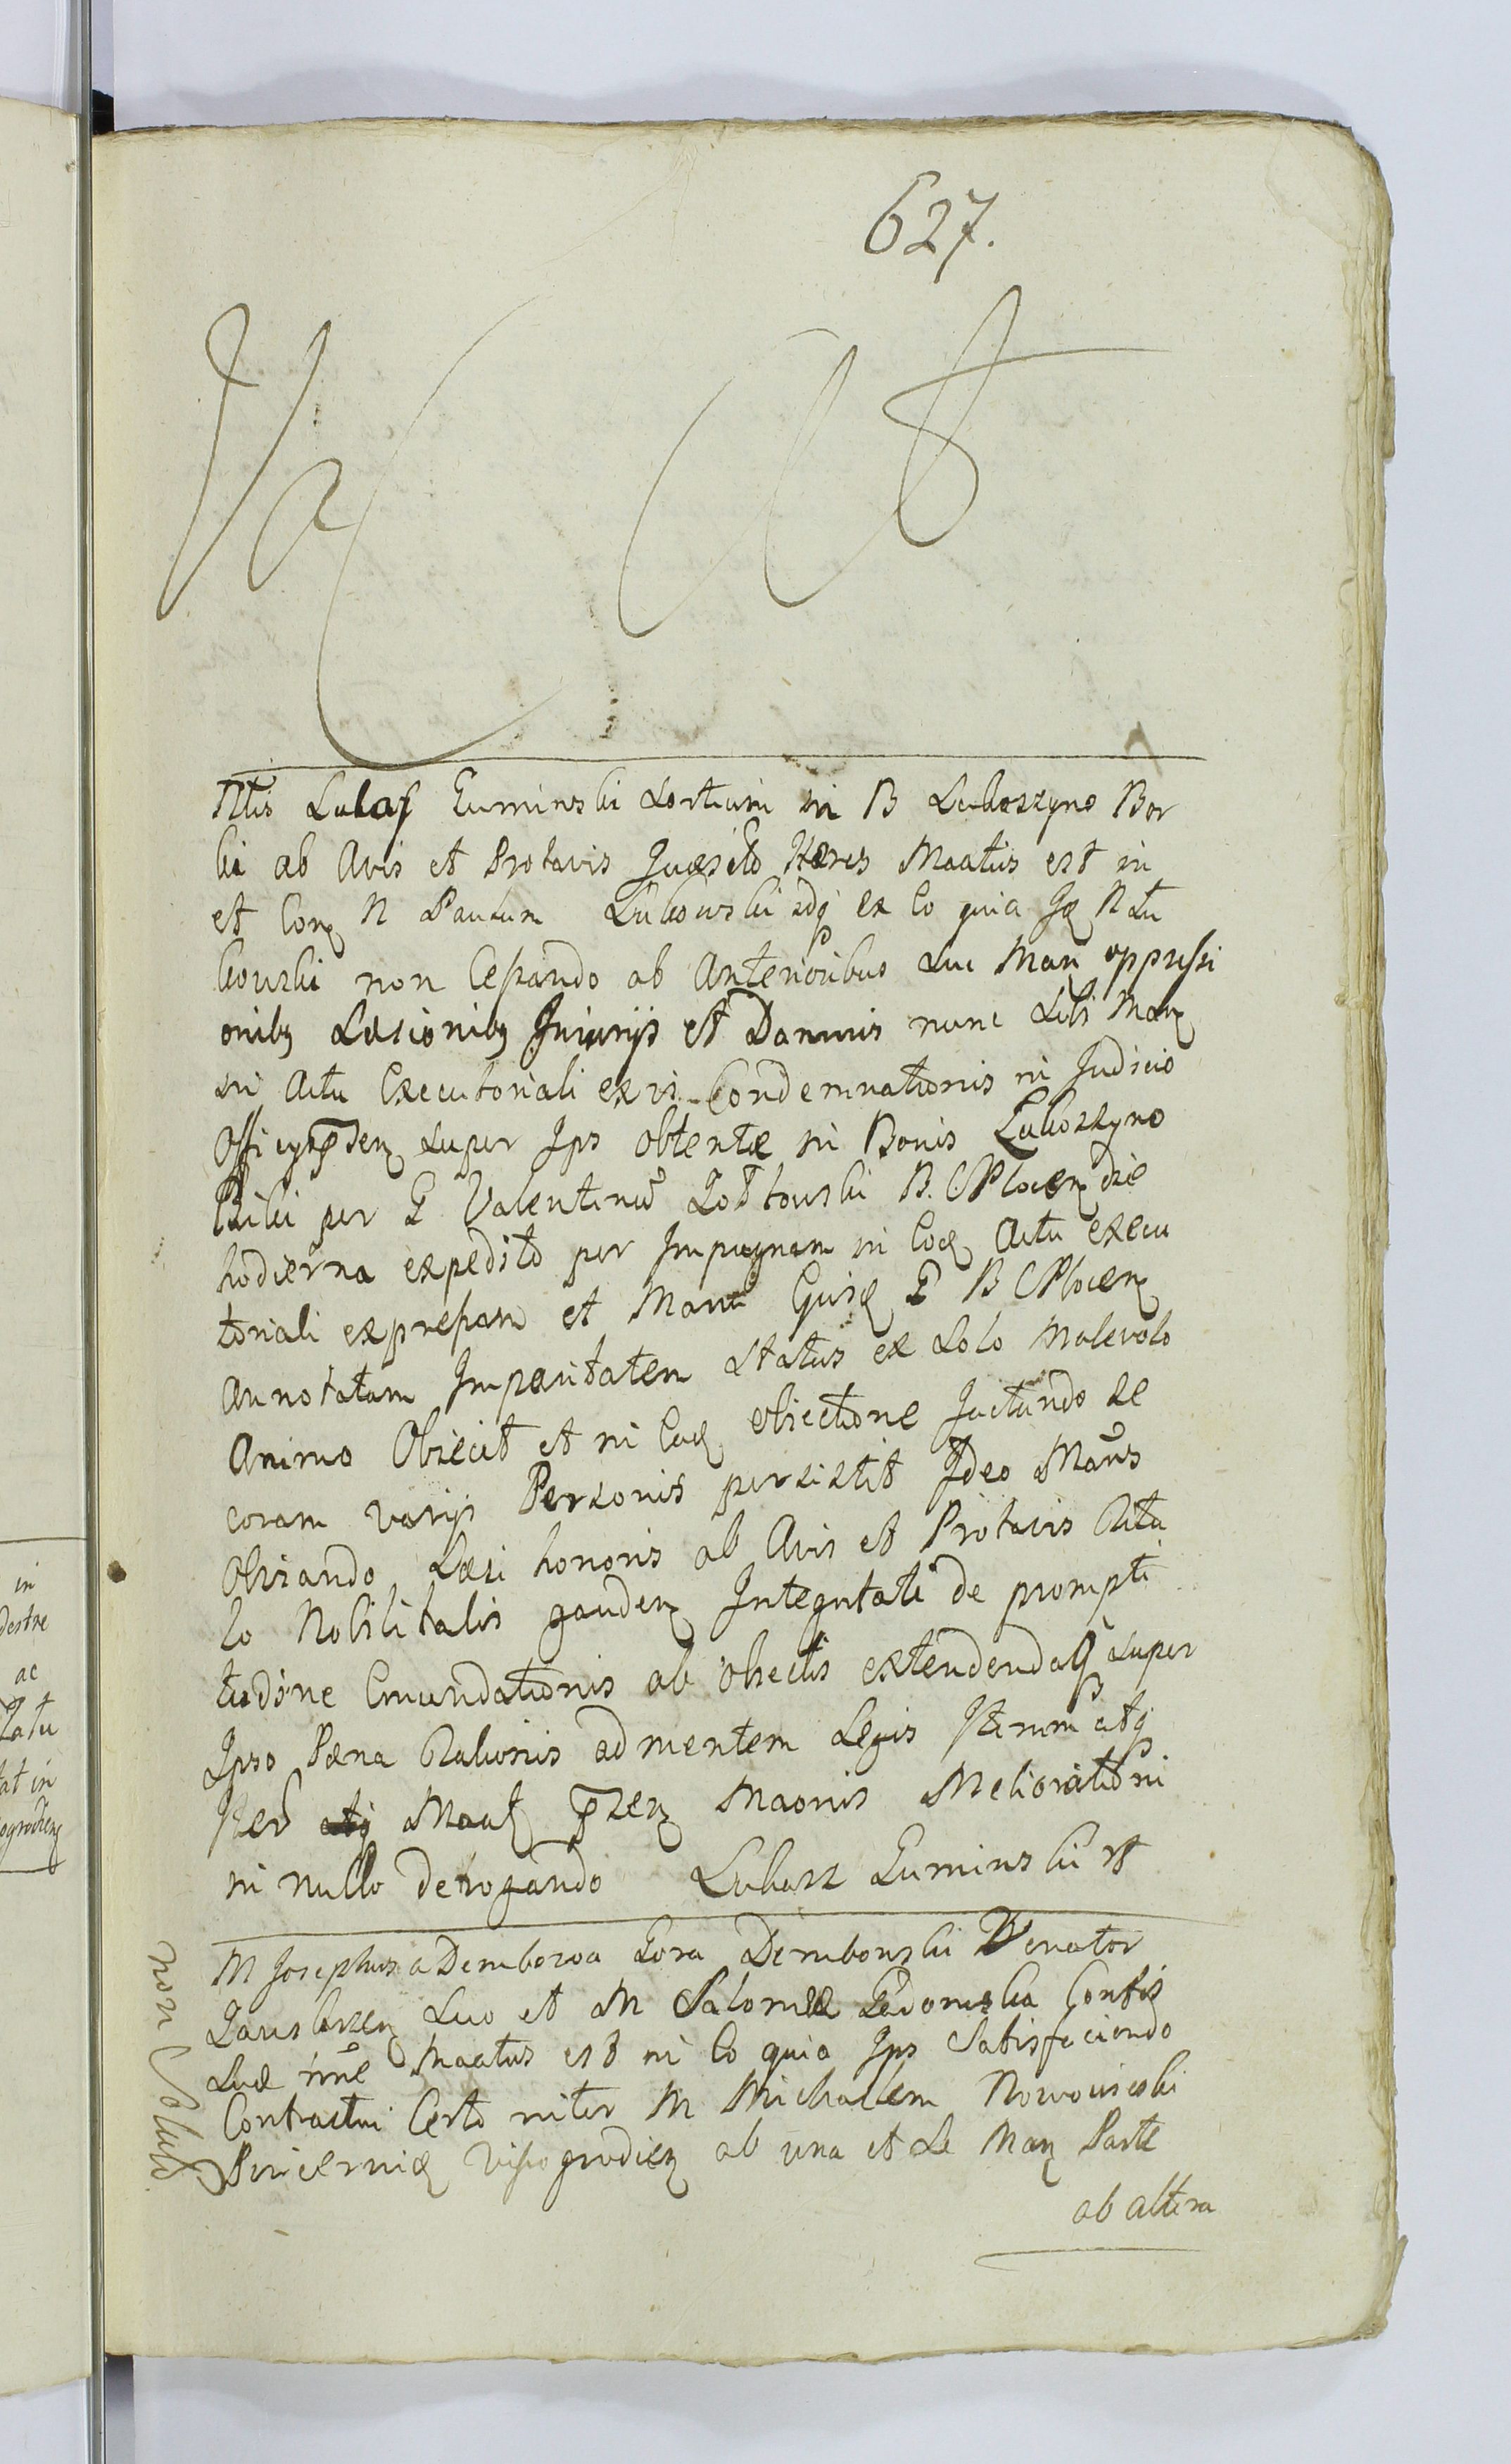 627.
Vacat
Nlis Lukas Guminski Sortium in B Lukoszyno Bor
ki ab Avis et Protavis Quæsito Hæres Maatus est in
et Conq N Paulum Lukowski idq ex Eo quia Jq N Lu
kowski non Cessando ab Anterioribus Sui Manq oppressi
onibq Læsionibq Injurijs et Damnis nunc Sibi Manq
in Actu Executoriali ex vi Condemnationis in Judicio
Officij super Ips obtentæ in Bonis Lukoszyno
Biki per G Valentinu B. C Plocenq die
hodierna expedito per Impugnam in Eoq Actu execu
toriali expressam et Manu Ejusq G B C Plocenq
Annotatam Imparitatem Status ex Solo Malevolo
Animo Obiecit et in Eaq obiectione Jactando se
coram varijs Personis persistit Ideo Mans
Obviando Læsi honoris ab Avis et Protavis Titu
lo Nobilitatis gaudenq Integritati de prompti
tudine Emundationis ab obiectis extendendaq super
Ipso Pæna Talionis ad mentem Legis Iterum atq
Iter Maatq pnsenq Maonis Meliorationi
in nullo derogando Lukasz Guminski st
M Josephus a Dembowa Gora Dembowski Venator
Suo et M Salomeæ Contis
Suæ nne Maatus est in Eo quia Ips Satisfaciendo
Contractui Certo inter M Michaelem Nowowieski
Pincernæ Vissogrodienq ab una et Se Manq Parte
ab altera
non Soluta
in
destre
ac
tat in
ogrodienq